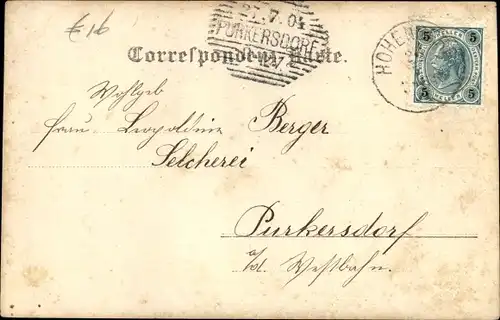 € 16
27.7.04
PURKERSDORF
Correspondenz-Karte.
HOHEN
5 HELLER 5
5 5
Wohlgeb
Frau Leopoldine Berger
Selcherei
Purkersdorf
a/d. Westbahn.